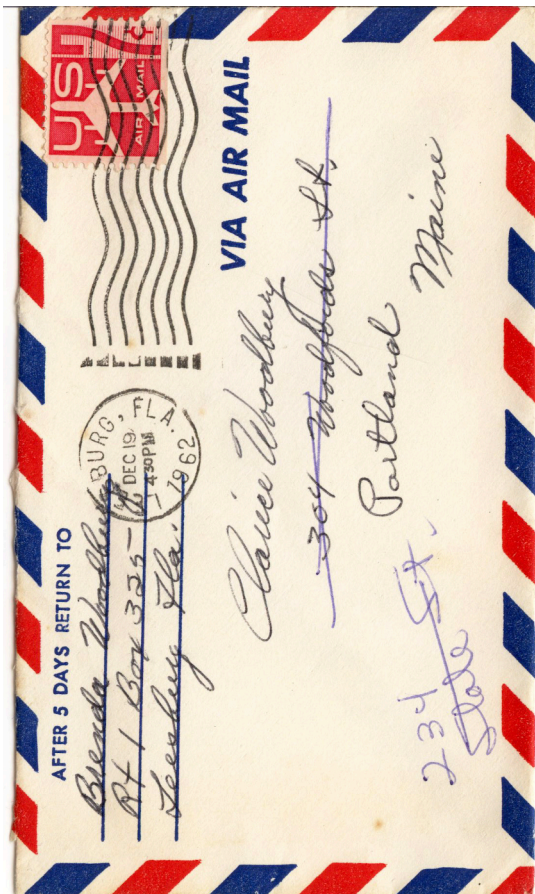 AFTER 5 DAYS RETURN TO
Brenda Woodbury
Rt 1 Box 325-
Leesburg Fla.
BURG, FLA.
DEC 19
430PM
1962
USA
AIR MAIL
VIA AIR MAIL
Clarice Woodbury
304 Woodfords St.
Portland
Maine
234
State St.